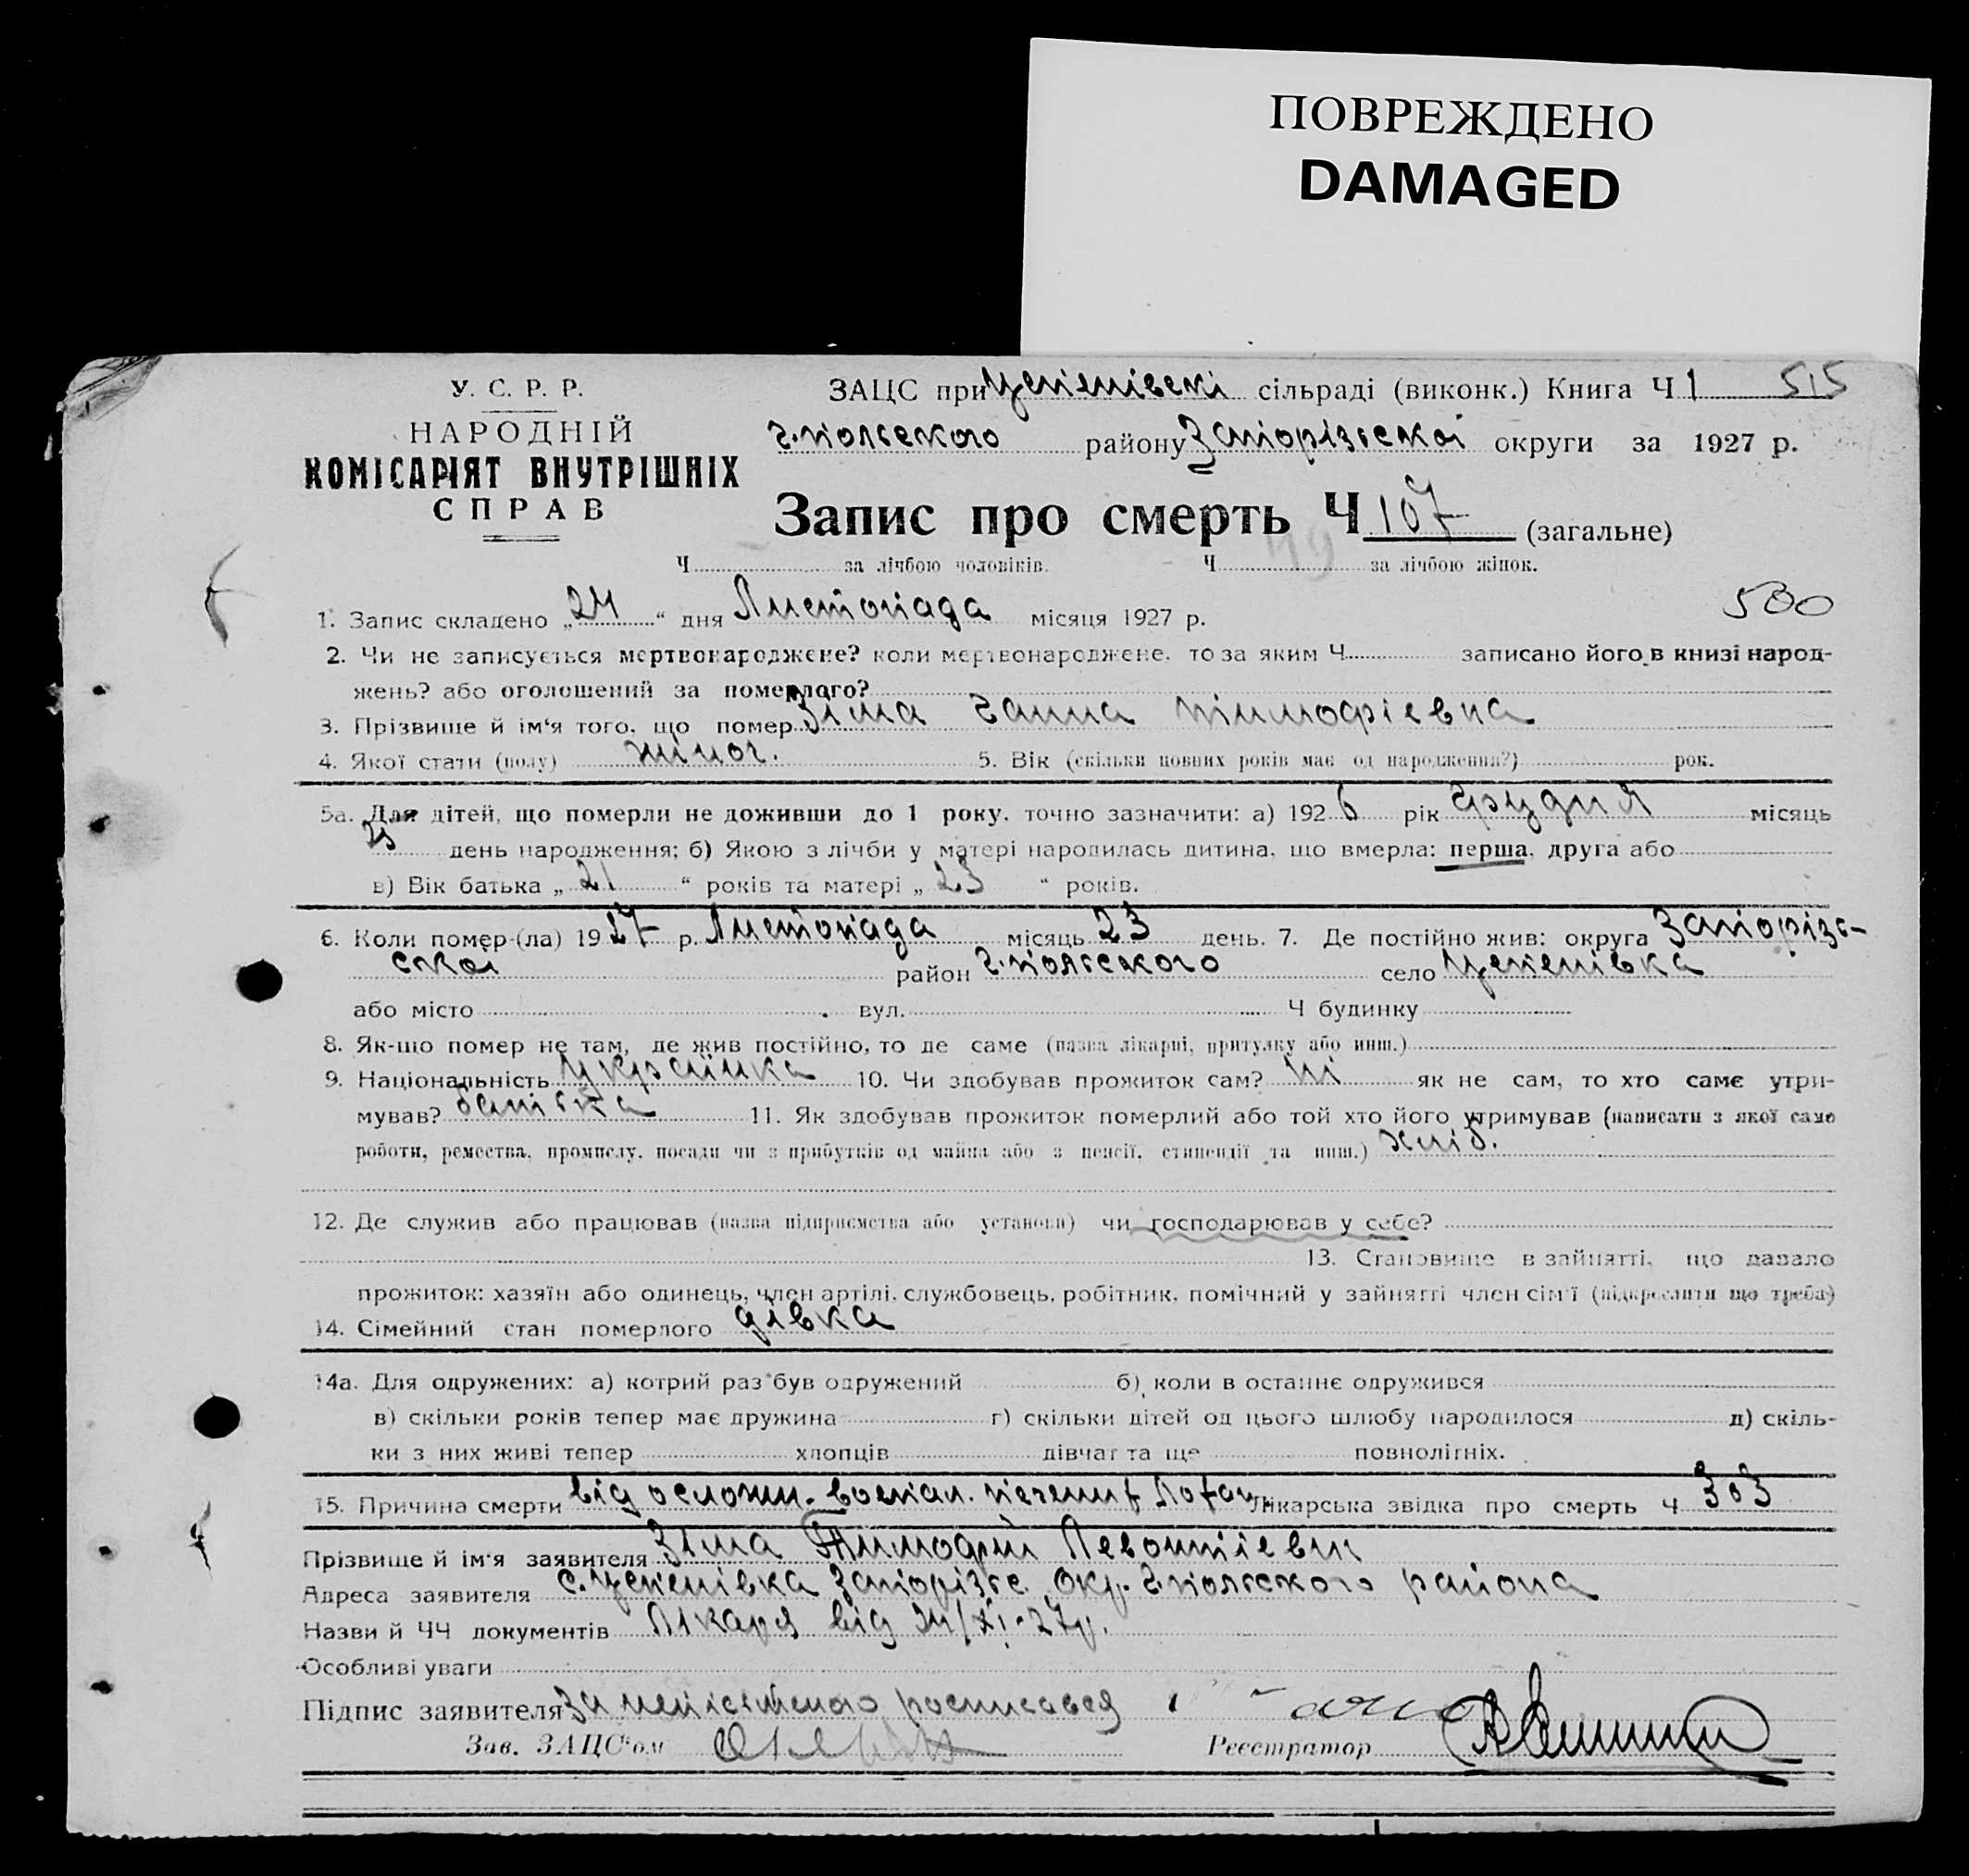 ПОВРЕЖДЕНО
DAMAGED
У. С. Р. Р.
НАРОДНІЙ
КОМІСАРІЯТ ВНУТРІШНІХ
СПРАВ
ЗАЦС при Цепенівскі сільраді (виконк.) Книга Ч 1 515
г.польского району Запорізської округи за 1927 р.
Запис про смерть Ч 107 (загальне)
Ч за лічбою чоловіків. Ч 49 за лічбою жінок.
500
1. Запис складено „24“ дня Листопада місяця 1927 р.
2. Чи не записується мертвонароджене? коли мертвонароджене, то за яким Ч записано його в книзі народ-
жень? або оголошений за померлого?
3. Прізвище й ім'я того, що помер Зіма Ганна Тімофіевна
4. Якої стати (полу) жіноч. 5. Вік (скільки повних років має од народження?) рок.
5а. Для дітей, що померли не доживши до 1 року, точно зазначити: а) 1926 рік Грудня місяць
день народження; б) Якою з лічби у матері народилась дитина, що вмерла: перша, друга або
в) Вік батька „21“ років та матері „23“ років.
6. Коли помер-(ла) 1927 р. Листопада місяць 23 день. 7. Де постійно жив: округа Запорізс-
скої район г.польского село Цепенівка
або місто вул. Ч будинку
8. Як-що помер не там, де жив постійно, то де саме (назва лікарні, притулку або инш.)
9. Національність Українка 10. Чи здобував прожиток сам? ні як не сам, то хто саме утри-
мував? батька 11. Як здобував прожиток померлий або той хто його утримував (написати з якої само
роботи, ремества, промислу, посади чи з прибутків од майна або з пенсії, стипендії та инш.) хліб.
12. Де служив або працював (назва підприємства або установи) чи господарював у себе?
13. Становище в зайнятті, що давало
прожиток: хазяїн або одинець, член артілі, службовець, робітник, помічний у зайнятті член сім'ї (підкреслити що треба)
14. Сімейний стан померлого дівка
14а. Для одружених: а) котрий раз був одружений б) коли в останнє одружився
в) скільки років тепер має дружина г) скільки дітей од цього шлюбу народилося д) скіль-
ки з них живі тепер хлопців дівчат та ще повнолітніх.
15. Причина смерти від осложн. воспал. Лікарська звідка про смерть Ч 303
Прізвище й ім'я заявителя Зіма Тимофій Левонтіевич
Адреса заявителя с. Цепенівка Запорізьс. Окр. г.польского района
Назви й ЧЧ документів Лікаря від 24/XI-27р.
Особливі уваги
Підпис заявителя За неписьменого росписався
Зав. ЗАЦС'ом Реєстратор